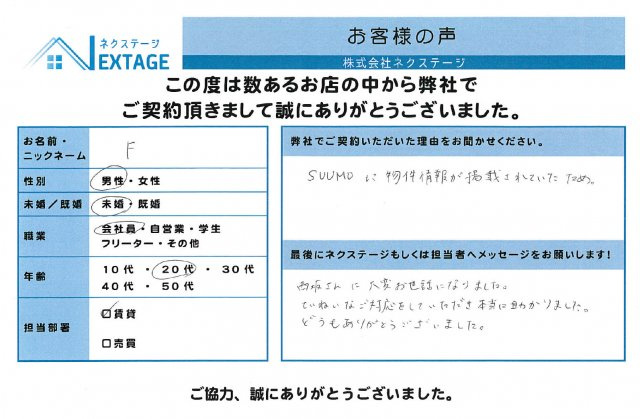 ネクステージ
NEXTAGE
お客様の声
株式会社ネクステージ
この度は数あるお店の中から弊社で
ご契約頂きまして誠にありがとうございました。
お名前・
ニックネーム
F
性別
男性・女性
未婚/既婚
未婚・既婚
職業
会社員・自営業・学生
フリーター・その他
年齢
10代 ・ 20代 ・ 30代
40代 ・ 50代
担当部署
☑賃貸
□売買
弊社でご契約いただいた理由をお聞かせください。
SUUMOに物件情報が掲載されていたため。
最後にネクステージもしくは担当者へメッセージをお願いします!
西坂さんに大変お世話になりました。
ていねいなご対応をしていただき本当に助かりました。
どうもありがとうございました。
ご協力、誠にありがとうございました。